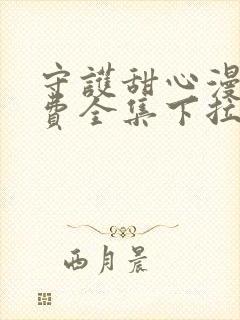 守護甜心漫
費全集下拉
西月晨